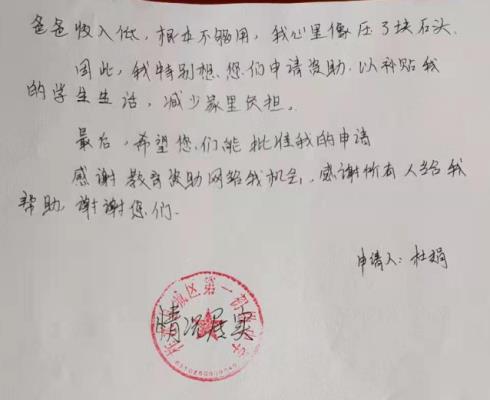 爸爸收入低，根本不够用，我心里像压了块石头.
因此，我特别想您们申请资助.以补贴我
的学生生活，减少家里负担。
最后，希望您们能批准我的申请
感谢教育资助网给我机会，感谢所有人给我
帮助，谢谢您们.
申请人：杜娟
区第一初级中学
情况属实